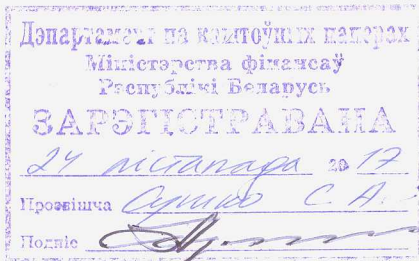 Дэпартамент па каштоўных паперах
Міністэрства фінансаў
Рэспублікі Беларусь
ЗАРЭГІСТРАВАНА
24 лістапада 2017
Прозвішча С. А.
Подпіс